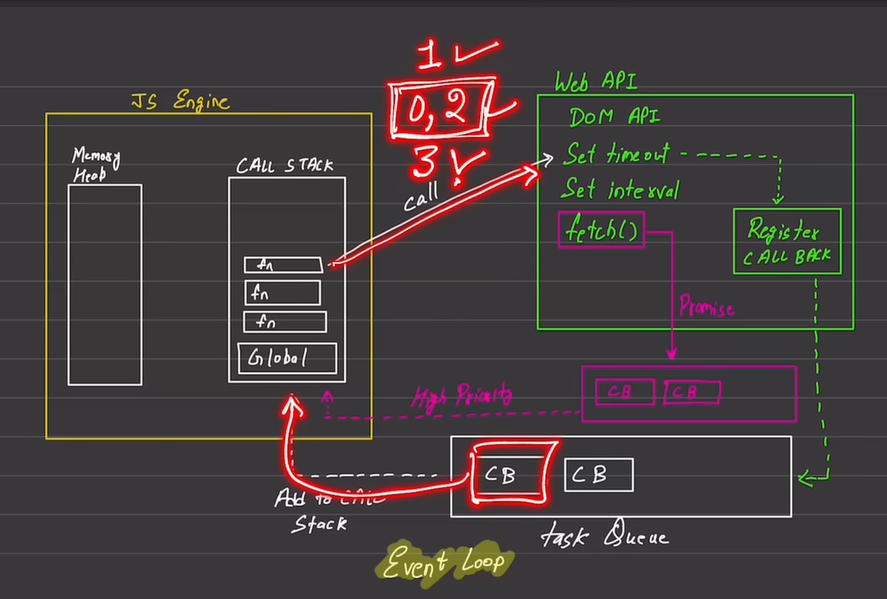 1
0, 2
3
JS Engine
Memory
Heap
CALL STACK
fn
fn
fn
Global
call
Web API
DOM API
Set timeout
Set interval
fetch()
Register
CALL BACK
Promise
CB CB
High Priority
CB CB
Add to CALL
Stack
task Queue
Event Loop